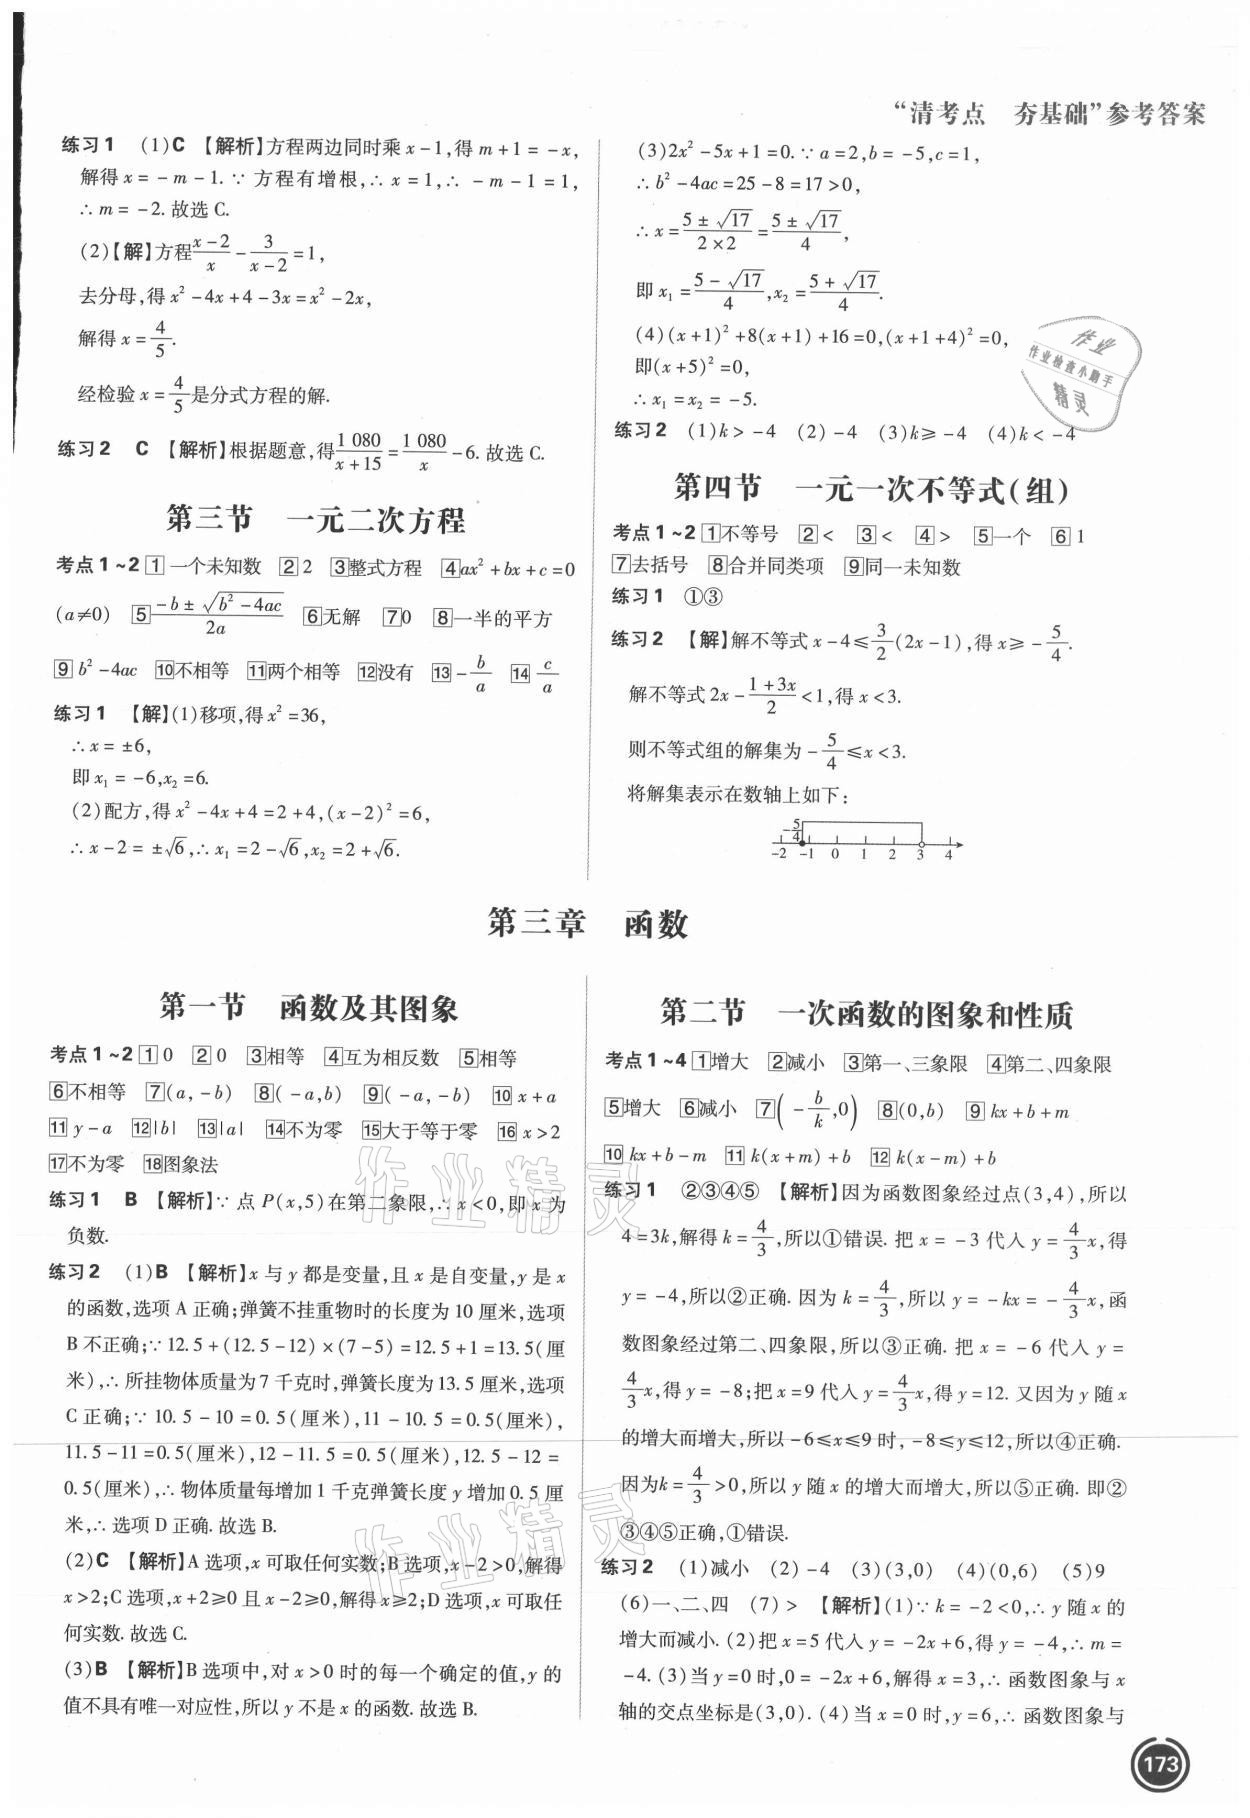 “清考点　夯基础”参考答案
练习1　(1)C　【解析】方程两边同时乘 x-1,得 m+1=-x,
解得 x=-m-1.∵ 方程有增根,∴ x=1,∴ -m-1=1,
∴ m=-2.故选 C.
(2)【解】方程(x-2)/x - 3/(x-2) =1,
去分母,得 x²-4x+4-3x=x²-2x,
解得 x=4/5.
经检验 x=4/5是分式方程的解.
练习2　C　【解析】根据题意,得1 080/(x+15)=1 080/x-6.故选 C.
第三节　一元二次方程
考点1~2 1一个未知数　2 2　3整式方程　4 ax²+bx+c=0
(a≠0)　5 (-b±√(b²-4ac))/2a　6无解　7 0　8一半的平方
9 b²-4ac　10不相等　11两个相等　12没有　13 -b/a　14 c/a
练习1　【解】(1)移项,得 x²=36,
∴ x=±6,
即 x₁=-6,x₂=6.
(2)配方,得 x²-4x+4=2+4,(x-2)²=6,
∴ x-2=±√6,∴ x₁=2-√6,x₂=2+√6.
(3)2x²-5x+1=0.∵ a=2,b=-5,c=1,
∴ b²-4ac=25-8=17>0,
∴ x=(5±√17)/(2×2)=(5±√17)/4,
即 x₁=(5-√17)/4,x₂=(5+√17)/4.
(4)(x+1)²+8(x+1)+16=0,(x+1+4)²=0,
即(x+5)²=0,
∴ x₁=x₂=-5.
练习2　(1)k>-4　(2)-4　(3)k≥-4　(4)k<-4
作业
作业检查小助手
精灵
第四节　一元一次不等式(组)
考点1~2 1不等号　2 <　3 <　4 >　5一个　6 1
7去括号　8合并同类项　9同一未知数
练习1　①③
练习2　【解】解不等式 x-4≤3/2(2x-1),得 x≥-5/4.
解不等式 2x-(1+3x)/2<1,得 x<3.
则不等式组的解集为-5/4≤x<3.
将解集表示在数轴上如下:
-5/4
-2 -1 0 1 2 3 4
第三章　函数
第一节　函数及其图象
考点1~2 1 0　2 0　3相等　4互为相反数　5相等
6不相等　7(a,-b)　8(-a,b)　9(-a,-b)　10 x+a
11 y-a　12|b|　13|a|　14不为零　15大于等于零　16 x>2
17不为零　18图象法
练习1　B　【解析】∵ 点 P(x,5)在第二象限,∴ x<0,即 x 为
负数.
练习2　(1)B　【解析】x 与 y 都是变量,且 x 是自变量,y 是 x
的函数,选项 A 正确;弹簧不挂重物时的长度为 10 厘米,选项
B 不正确;∵ 12.5+(12.5-12)×(7-5)=12.5+1=13.5(厘
米),∴ 所挂物体质量为 7 千克时,弹簧长度为 13.5 厘米,选项
C 正确;∵ 10.5-10=0.5(厘米),11-10.5=0.5(厘米),
11.5-11=0.5(厘米),12-11.5=0.5(厘米),12.5-12=
0.5(厘米),∴ 物体质量每增加 1 千克弹簧长度 y 增加 0.5 厘
米,∴ 选项 D 正确.故选 B.
(2)C　【解析】A 选项,x 可取任何实数;B 选项,x-2>0,解得
x>2;C 选项,x+2≥0 且 x-2≥0,解得 x≥2;D 选项,x 可取任
何实数.故选 C.
(3)B　【解析】B 选项中,对 x>0 时的每一个确定的值,y 的
值不具有唯一对应性,所以 y 不是 x 的函数.故选 B.
第二节　一次函数的图象和性质
考点1~4 1增大　2减小　3第一、三象限　4第二、四象限
5增大　6减小　7(-b/k,0)　8(0,b)　9 kx+b+m
10 kx+b-m　11 k(x+m)+b　12 k(x-m)+b
练习1　②③④⑤　【解析】因为函数图象经过点(3,4),所以
4=3k,解得 k=4/3,所以①错误.把 x=-3 代入 y=4/3x,得
y=-4,所以②正确.因为 k=4/3,所以 y=-kx=-4/3x,函
数图象经过第二、四象限,所以③正确.把 x=-6 代入 y=
4/3x,得 y=-8;把 x=9 代入 y=4/3x,得 y=12.又因为 y 随 x
的增大而增大,所以-6≤x≤9 时,-8≤y≤12,所以④正确.
因为k=4/3>0,所以 y 随 x 的增大而增大,所以⑤正确.即②
③④⑤正确,①错误.
练习2　(1)减小　(2)-4　(3)(3,0)　(4)(0,6)　(5)9
(6)一、二、四　(7)>　【解析】(1)∵ k=-2<0,∴ y 随 x 的
增大而减小.(2)把 x=5 代入 y=-2x+6,得 y=-4,∴ m=
-4.(3)当 y=0 时,0=-2x+6,解得 x=3,∴ 函数图象与 x
轴的交点坐标是(3,0).(4)当 x=0 时,y=6,∴ 函数图象与
作业精灵
作业精灵
173